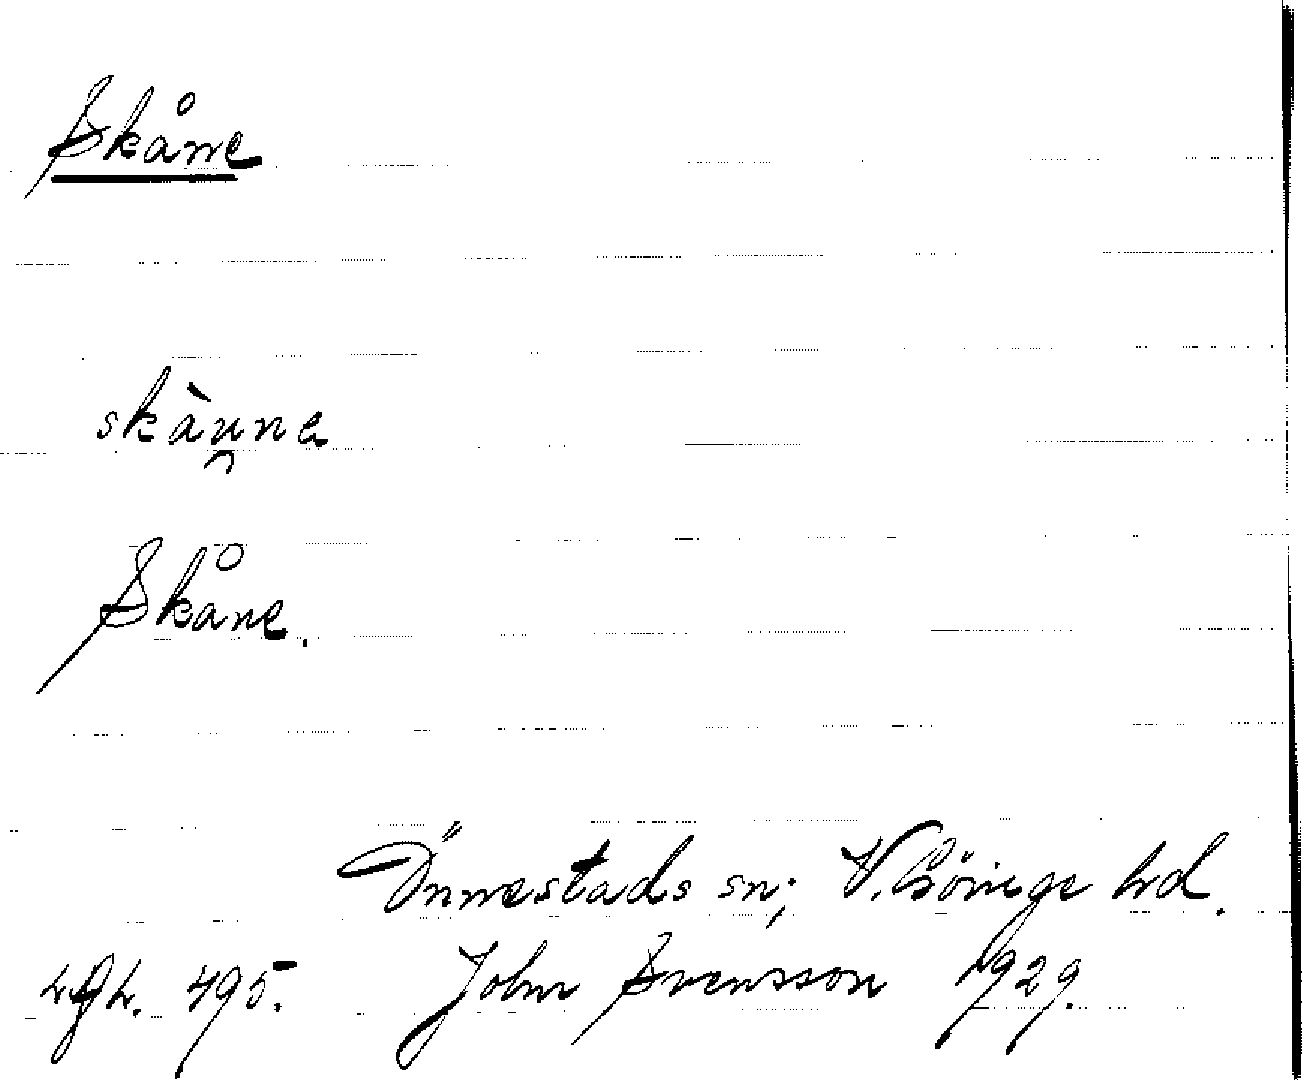 Skåne
skàu̯nə
Skåne.
Önnestads sn; V. Göinge hd.
495. John Svensson 1929.